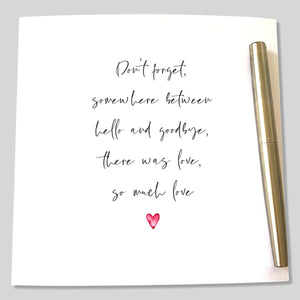 Don't forget,
somewhere between
hello and goodbye,
there was love,
so much love